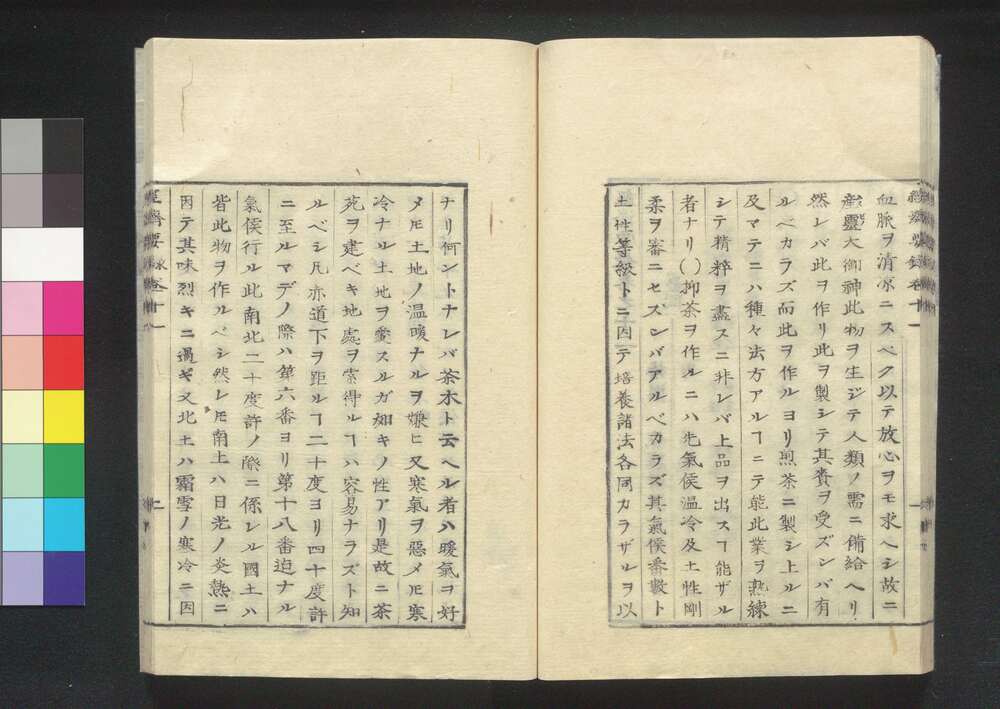 血脈ヲ清凉ニスベク以テ放心ヲモ求ヘシ故ニ
産靈大御神此物ヲ生ジテ人類ノ需ニ備給ヘリ
然レバ此ヲ作リ此ヲ製シテ其賚ヲ受ズンバ有
ルベカラズ而此ヲ作ルヨリ煎茶ニ製シ上ルニ
及マテニハ種々法方アルヿニテ能此業ヲ熟練
シテ精粹ヲ盡スニ非レバ上品ヲ出スヿ能ザル
者ナリ()抑茶ヲ作ルニハ先氣侯温冷及土性剛
柔ヲ審ニセズンバアルベカラズ其氣侯番數ト
土性等級トニ因テ培養諸法各同カラザルヲ以
ナリ何ントナレバ茶木ト云ヘル者ハ暖氣ヲ好
メ𪜈土地ノ温暖ナルヲ嫌ヒ又寒氣ヲ惡メ𪜈寒
冷ナル土地ヲ愛スルガ如キノ性アリ是故ニ茶
苑ヲ建ベキ地處ヲ索得ルヿハ容易ナラズト知
ルベシ凡赤道下ヲ距ルヿ二十度ヨリ四十度許
ニ至ルマデノ際ハ第六番ヨリ第十八番迠ナル
氣侯行ル此南北二十度許ノ際ニ係レル國土ハ
皆此物ヲ作ルベシ然レ𪜈南土ハ日光ノ炎熱ニ
因テ其味烈キニ過ギ又北土ハ霜雪ノ寒冷ニ因
二